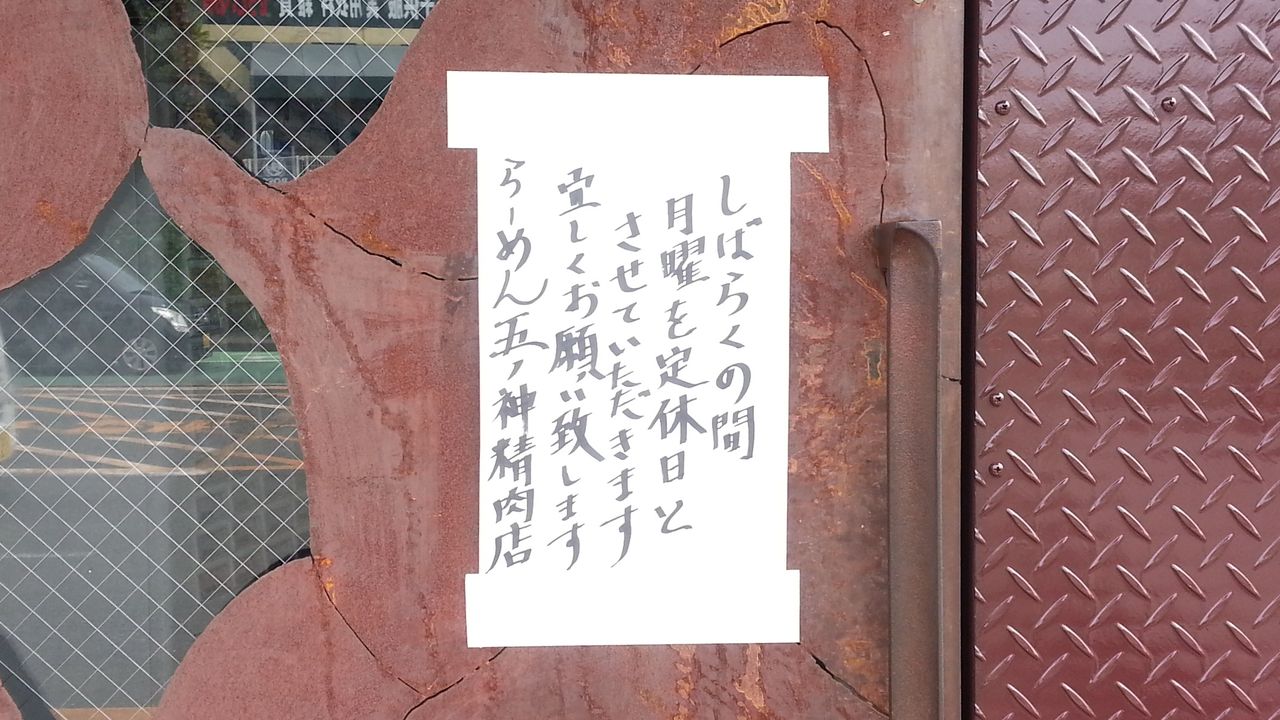 しばらくの間
月曜を定休日と
させていただきます
宜しくお願い致します
らーめん五ノ神精肉店